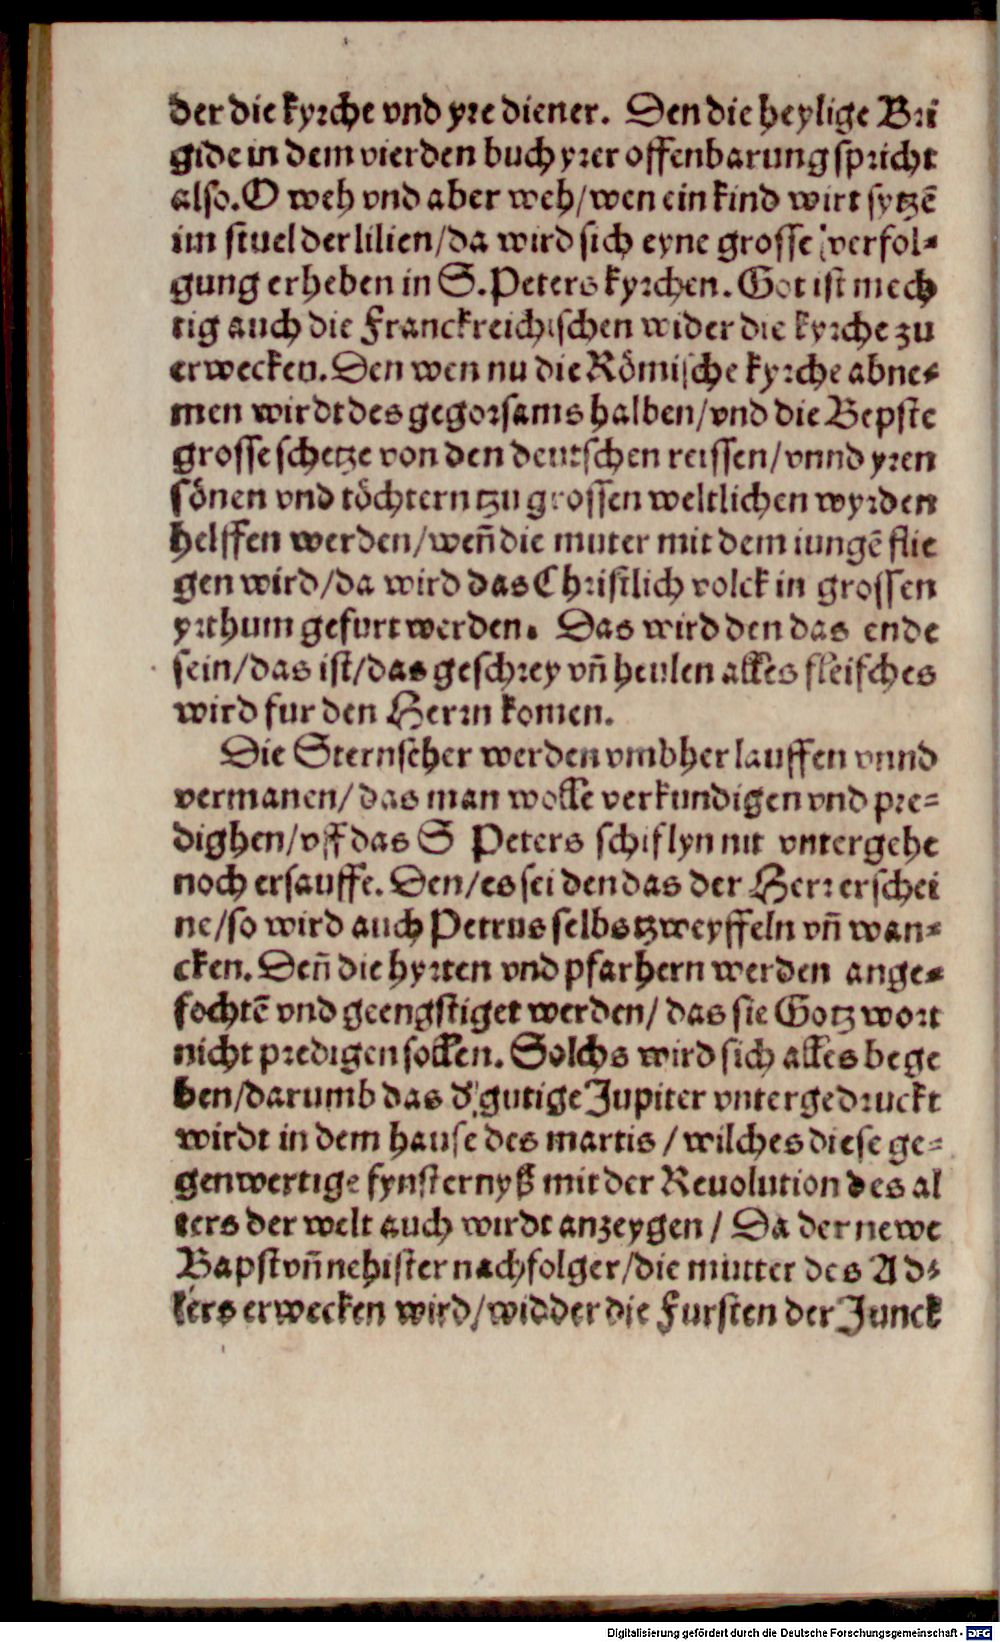 der die kyrche vnd yre diener. Den die heylige Bri
gide in dem vierden buch yrer offenbarung spricht
also. O weh vnd aber weh/wen ein kind wirt sytzē
im stuel der lilien/da wird sich eyne grosse verfol-
gung erheben in S. Peters kyrchen. Got ist mech
tig auch die Franckreichischen wider die kyrche zu
erwecken. Den wen nu die Römische kyrche abne-
men wirdt des gegorsams halben/vnd die Bepste
grosse schetze von den deutschen reissen/vnnd yren
sönen vnd töchtern tzu grossen weltlichen wyrden
helffen werden/weñ die muter mit dem iungē flie
gen wird/da wird das Christlich volck in grossen
yrthum gefurt werden. Das wird den das ende
sein/das ist/das geschrey vñ heulen alles fleisches
wird fur den Herrn komen.
Die Sternseher werden vmbher lauffen vnnd
vermanen/das man wolle verkundigen vnd pre-
dighen/vff das S Peters schiflyn nit vntergehe
noch ersauffe. Den/es sei den das der Herr erschei
ne/so wird auch Petrus selbs tzweyffeln vñ wan-
cken. Deñ die hyrten vnd pfarhern werden ange-
fochtē vnd geengstiget werden/das sie Gotz wort
nicht predigen sollen. Solchs wird sich alles bege
ben/darumb das d' gutige Jupiter vntergedruckt
wirdt in dem hause des martis/wilches diese ge-
genwertige fynsternyß mit der Reuolution des al
ters der welt auch wirdt anzeygen/Da der newe
Bapst vñ nehister nachfolger/die mutter des Ad-
lers erwecken wird/widder die Fursten der Junck
Digitalisierung gefördert durch die Deutsche Forschungsgemeinschaft - DFG